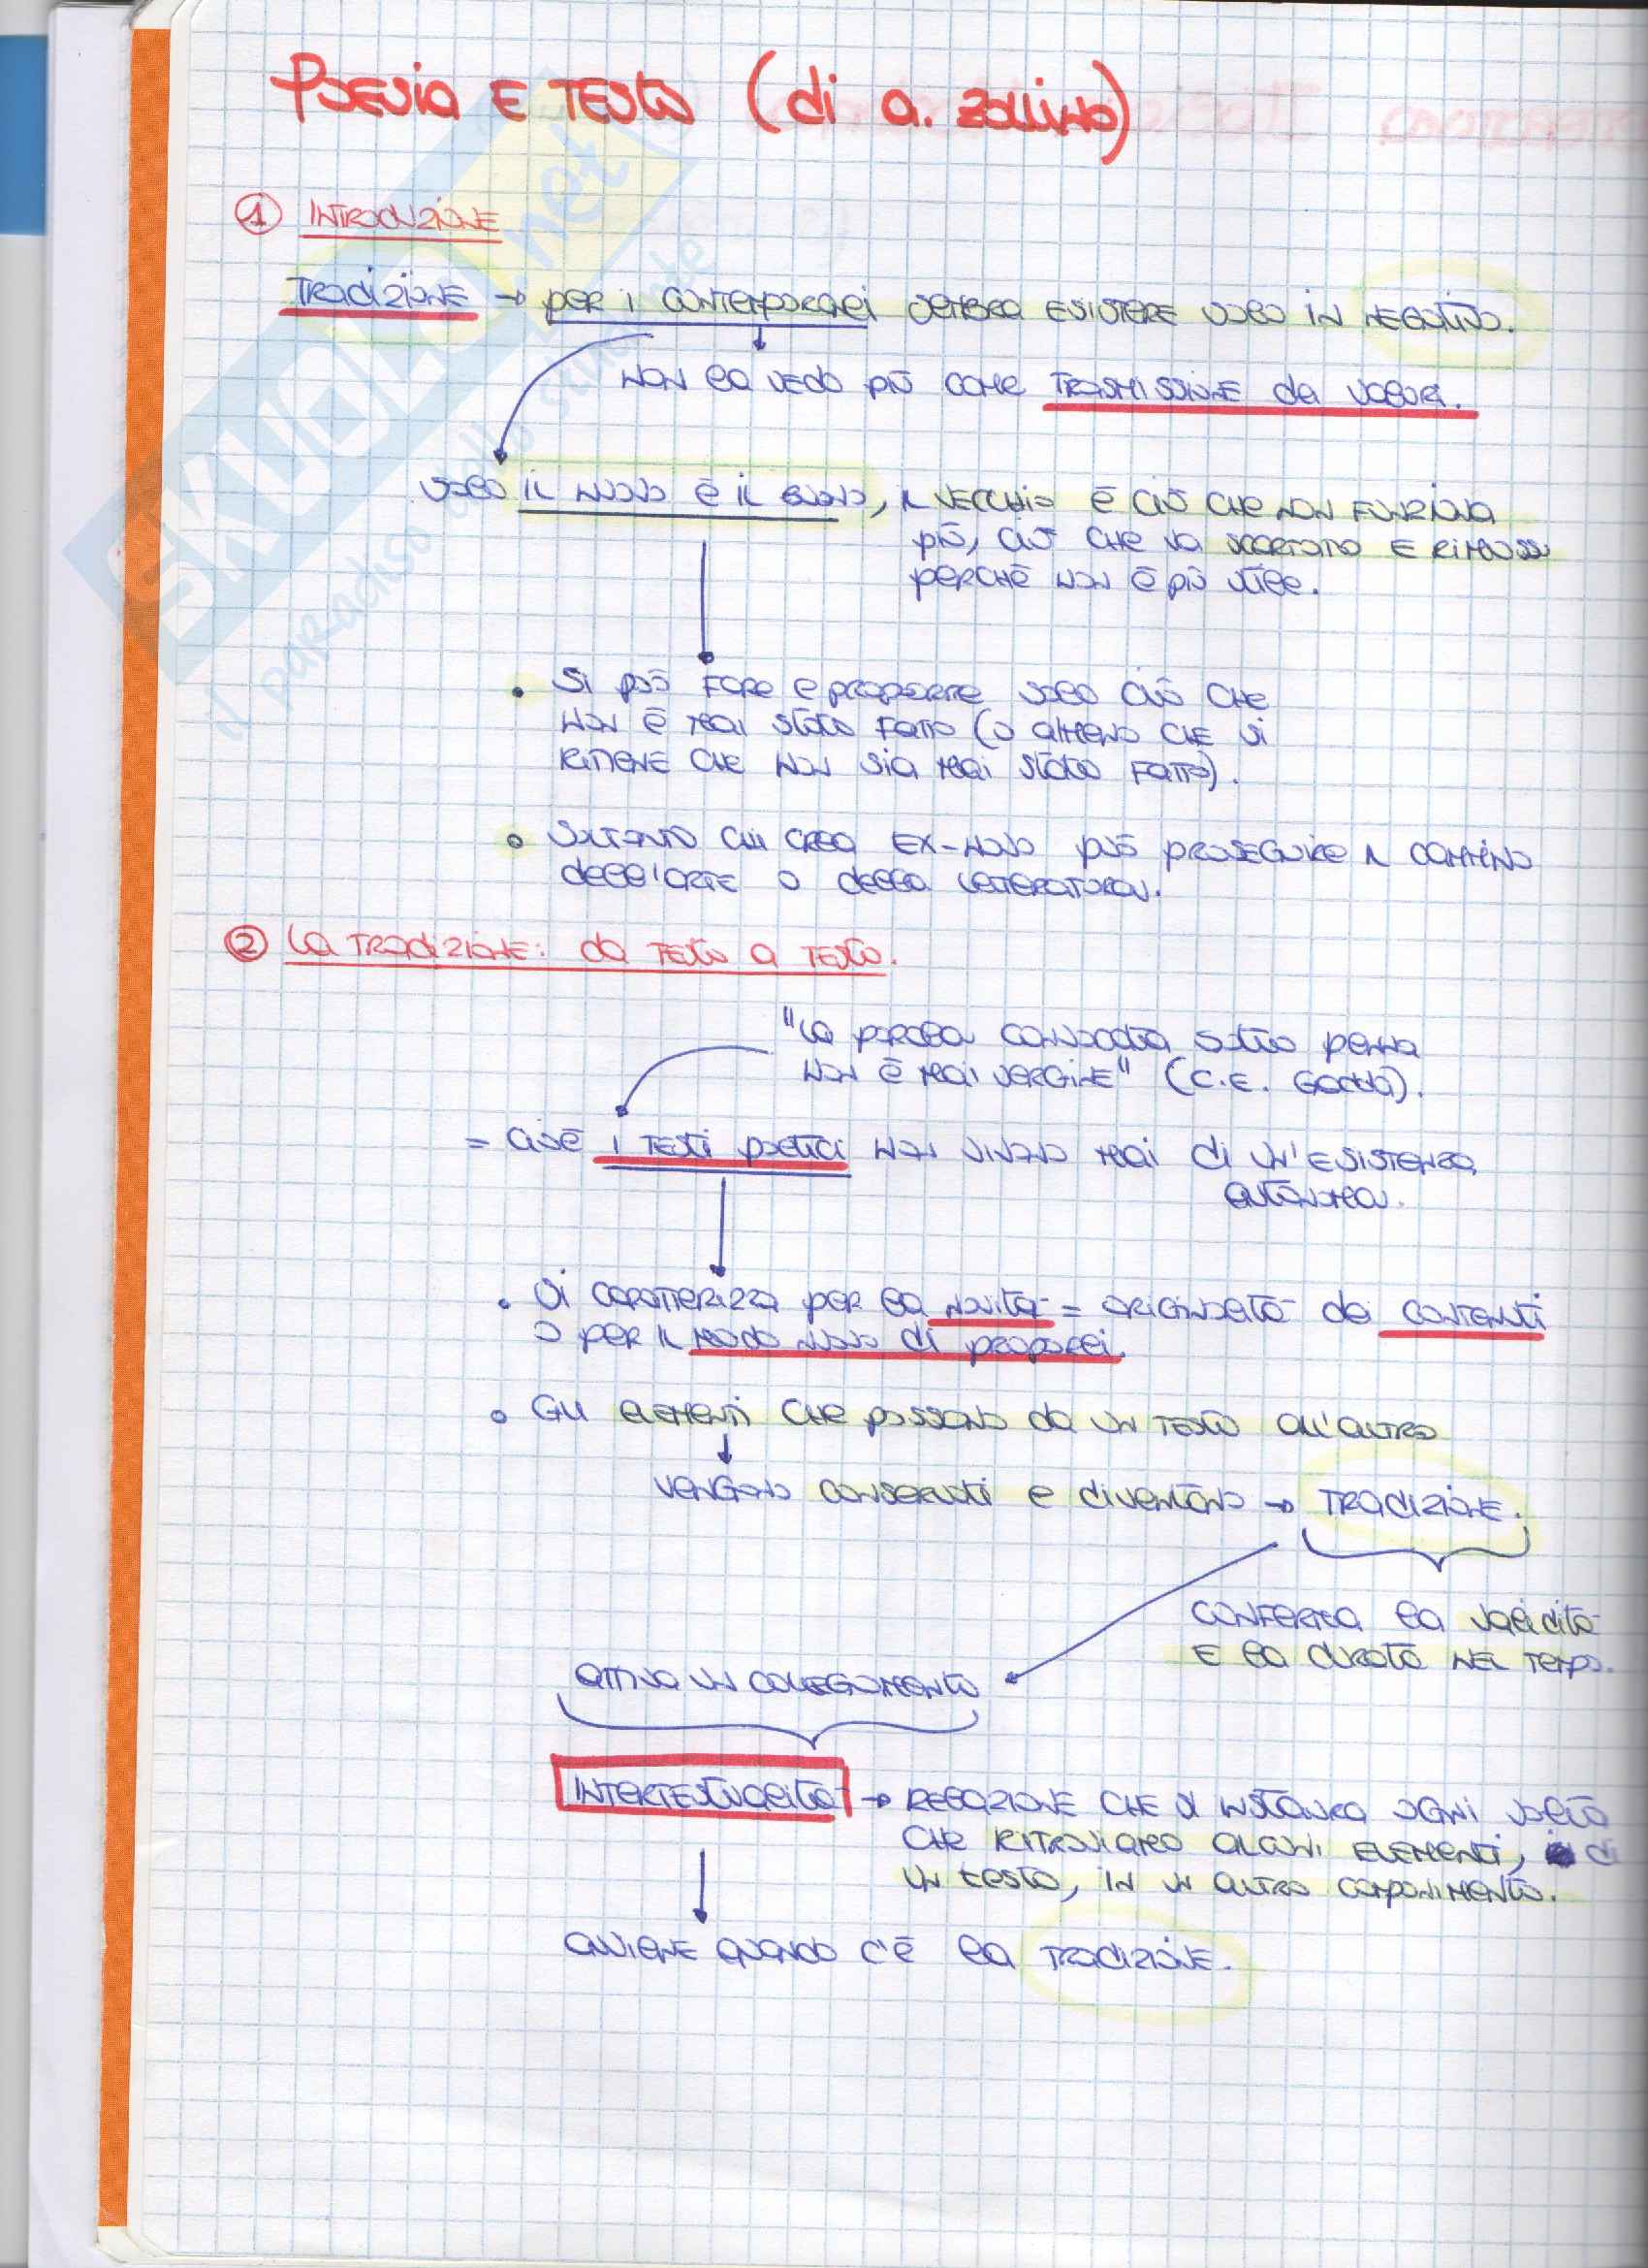 POESIA E TESTO (di A. ZOLLINO)
① INTRODUZIONE
TRADIZIONE → PER I CONTEMPORANEI SEMBRA ESISTERE SOLO IN NEGATIVO.
NON LA VEDO PIÙ COME TRASMISSIONE dei VALORI.
SOLO IL NUOVO È IL BUONO, IL VECCHIO È CIÒ CHE NON FUNZIONA
PIÙ, CIÒ CHE VA SCARTATO E RIMOSSO
PERCHÈ NON È PIÙ UTILE.
• SI PUÒ FARE E PROPORRE SOLO CIÒ CHE
NON È MAI STATO FATTO (O ALMENO CHE SI
RITIENE CHE NON SIA MAI STATO FATTO).
• SOLTANTO CHI CREA EX-NOVO PUÒ PROSEGUIRE IL CAMMINO
DELL'ARTE O DELLA LETTERATURA.
② LA TRADIZIONE: DA TESTO A TESTO.
"LA PAROLA CONVOCATA SOTTO PENNA
NON È MAI VERGINE" (C.E. GADDA).
= CIOÈ I TESTI POETICI NON VIVONO MAI DI UN'ESISTENZA
AUTONOMA.
• SI CARATTERIZZA PER LA NOVITÀ = ORIGINALITÀ DEI CONTENUTI
O PER IL MODO NUOVO DI PROPORLI.
• GLI ELEMENTI CHE PASSANO DA UN TESTO ALL'ALTRO
VENGONO CONSERVATI E DIVENTANO → TRADIZIONE.
CONFERMA LA VALIDITÀ
E LA DURATA NEL TEMPO.
ATTIVA UN COLLEGAMENTO
INTERTESTUALITÀ → RELAZIONE CHE SI INSTAURA OGNI VOLTA
CHE RITROVIAMO ALCUNI ELEMENTI, di
UN TESTO, IN UN ALTRO COMPONIMENTO.
AVVIENE QUANDO C'È LA TRADIZIONE.
SKUOLA.net
il paradiso dello studente